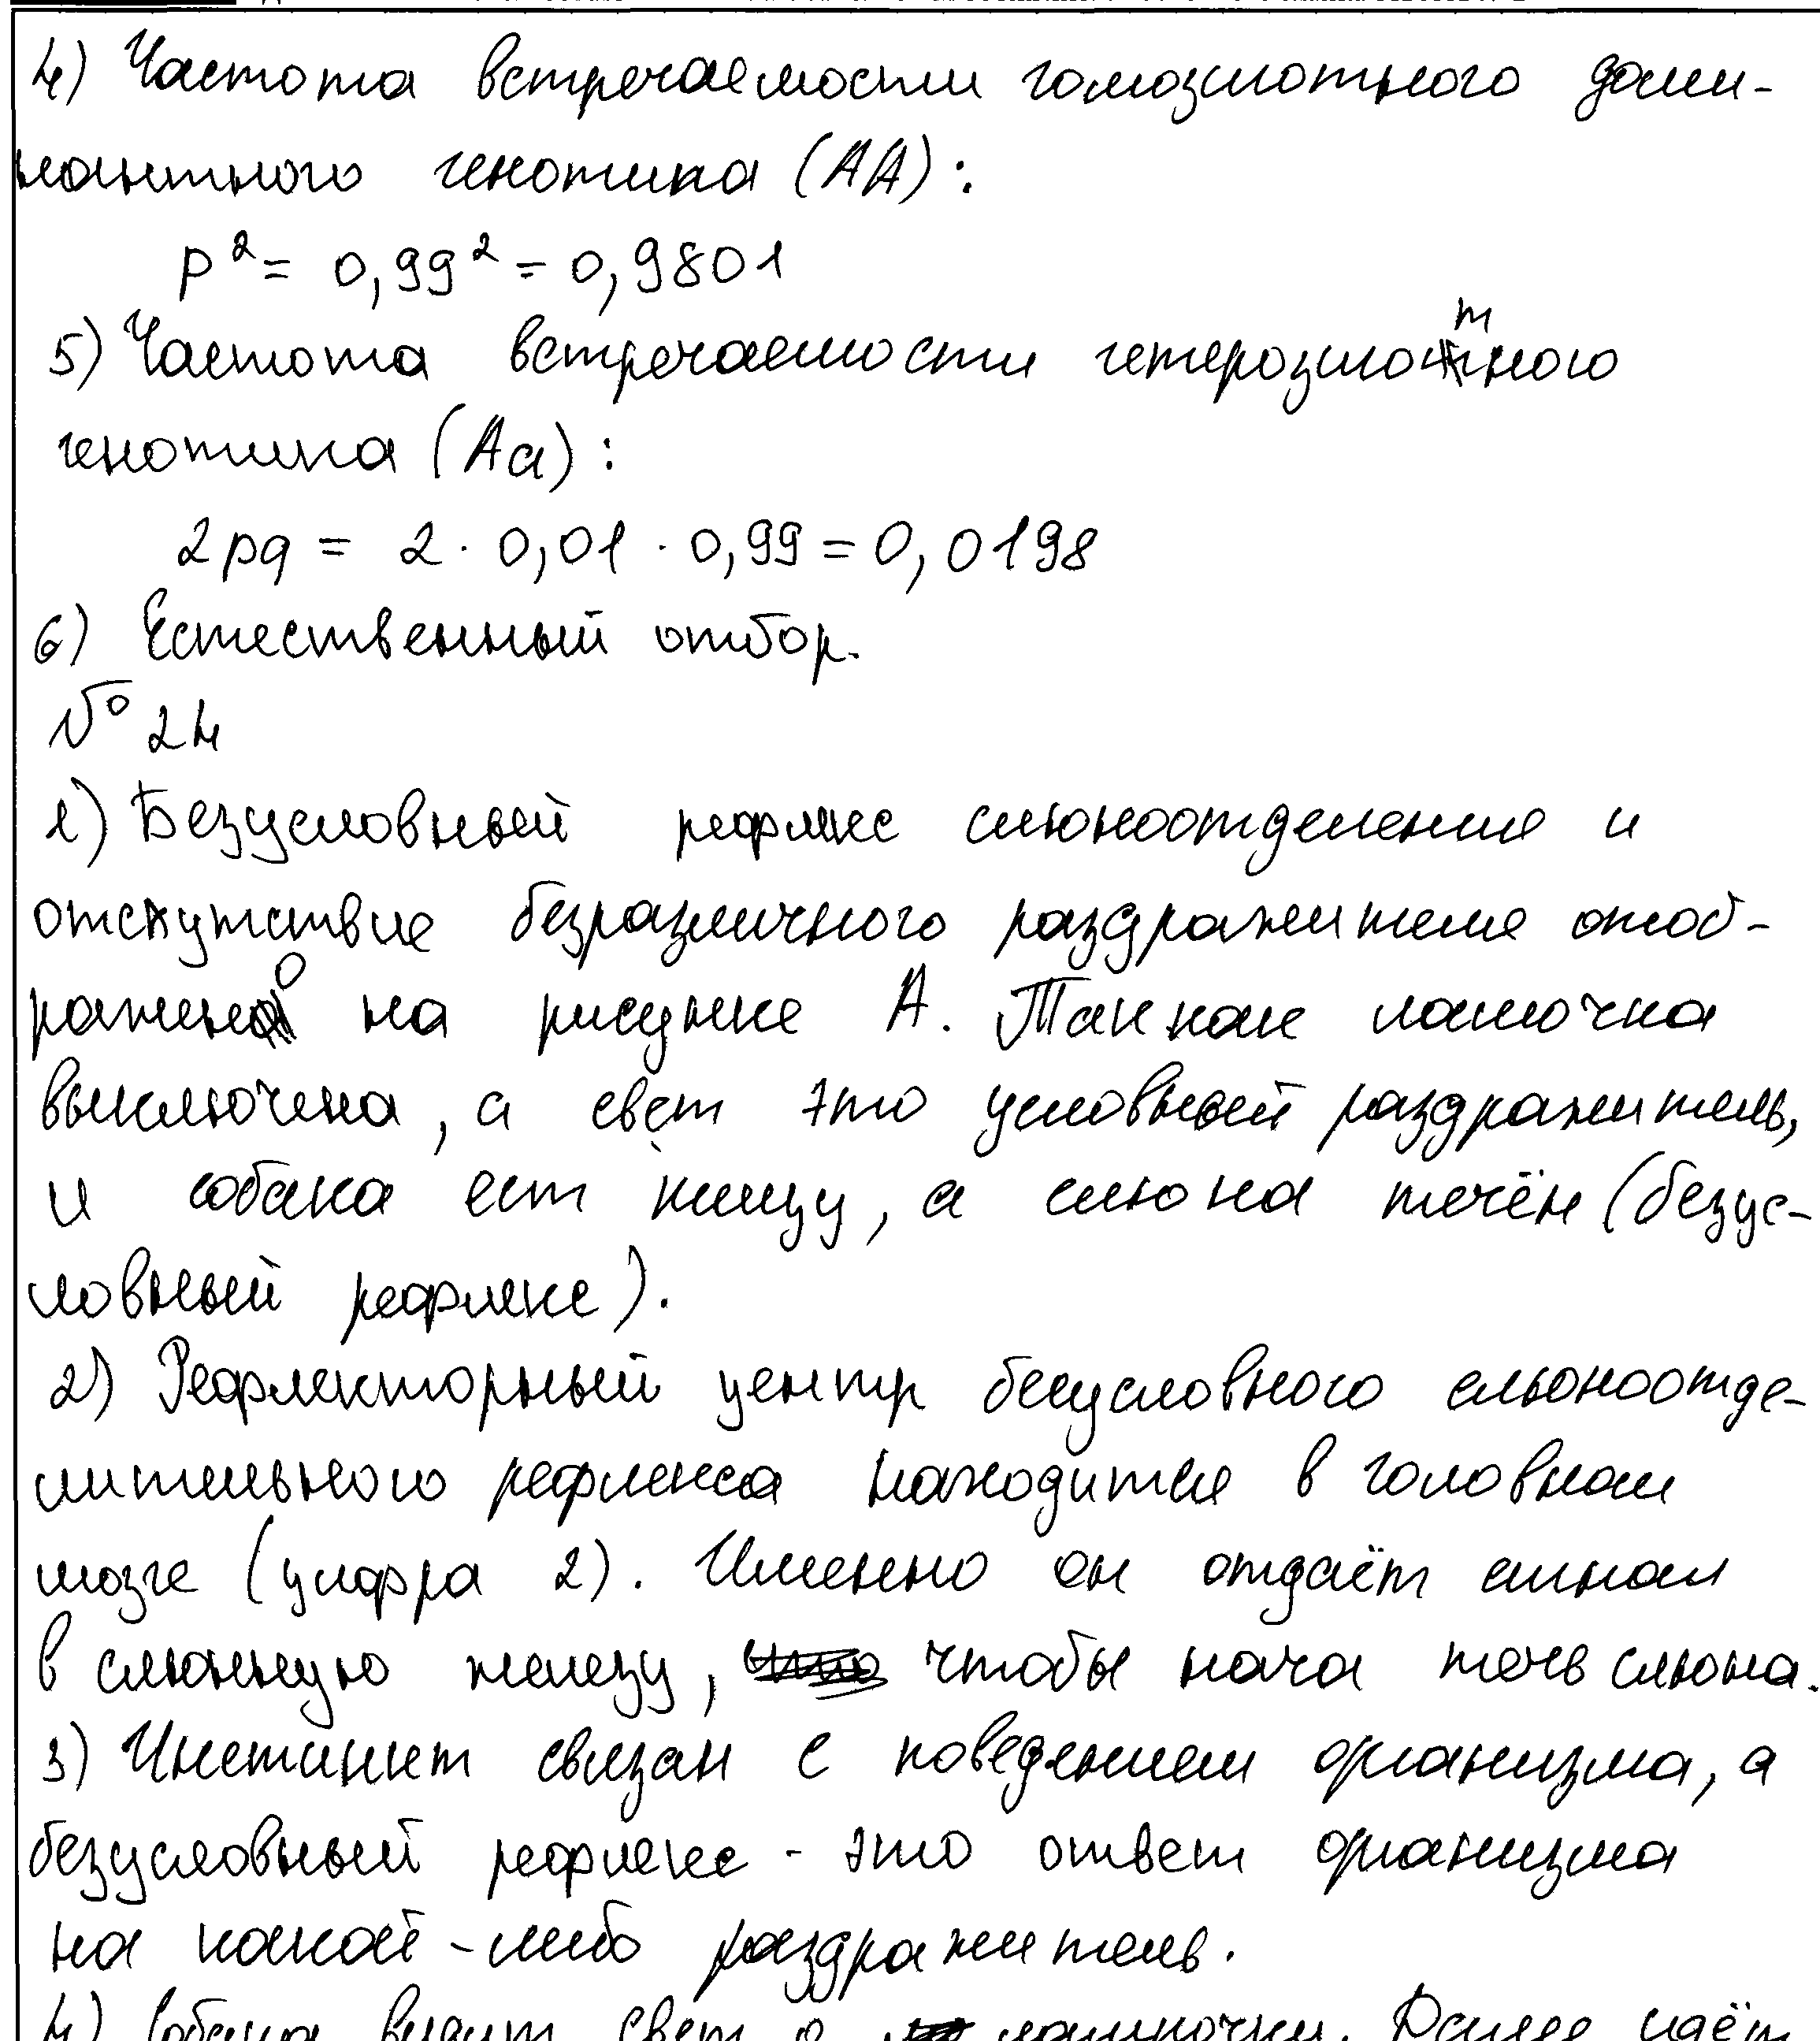 4) Частота встречаемости гомозиготного доми-
нантного генотипа (АА):
p² = 0,99² = 0,9801
5) Частота встречаемости гетерозиготного
генотипа (Аа):
2pq = 2 · 0,01 · 0,99 = 0,0198
6) Естественный отбор.
№ 24
1) Безусловный рефлекс слюноотделение и
отсутствие безразличного раздражителя отоб-
ражено на рисунке А. Так как лампочка
выключена, а свет это условный раздражитель,
и собака ест пищу, а слюна течёк (безус-
ловный рефлекс).
2) Рефлекторный центр безусловного слюноотде-
лительного рефлекса находится в головном
мозге (цифра 2). Именно он отдаёт сигнал
в слюнную железу, чтобы нача течь слюна.
3) Инстинкт связан с поведением организма, а
безусловный рефлекс - это ответ организма
на какой-либо раздражитель.
4) Собака видит свет о лампочки. Далее идёт